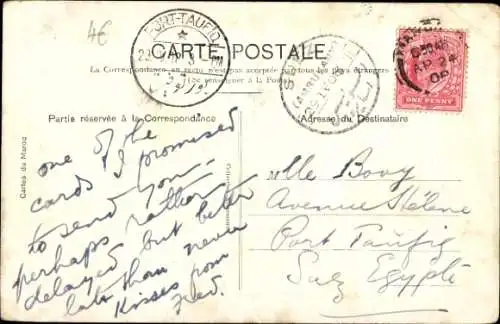 4€
PORT-TAUFIQ
CARTE POSTALE
La Correspondance au recto n'est pas acceptée par tous les pays étrangers
(Se renseigner à la Poste)
Partie réservée à la Correspondance
Adresse du Destinataire
Cartes du Maroc
ONE PENNY
one of the
cards I promised
to send you —
perhaps rather
delayed but better
late than never
Kisses from
Fred.
Mlle Bovy
Avenue Hélène
Port Taufiq
Suez Egypte